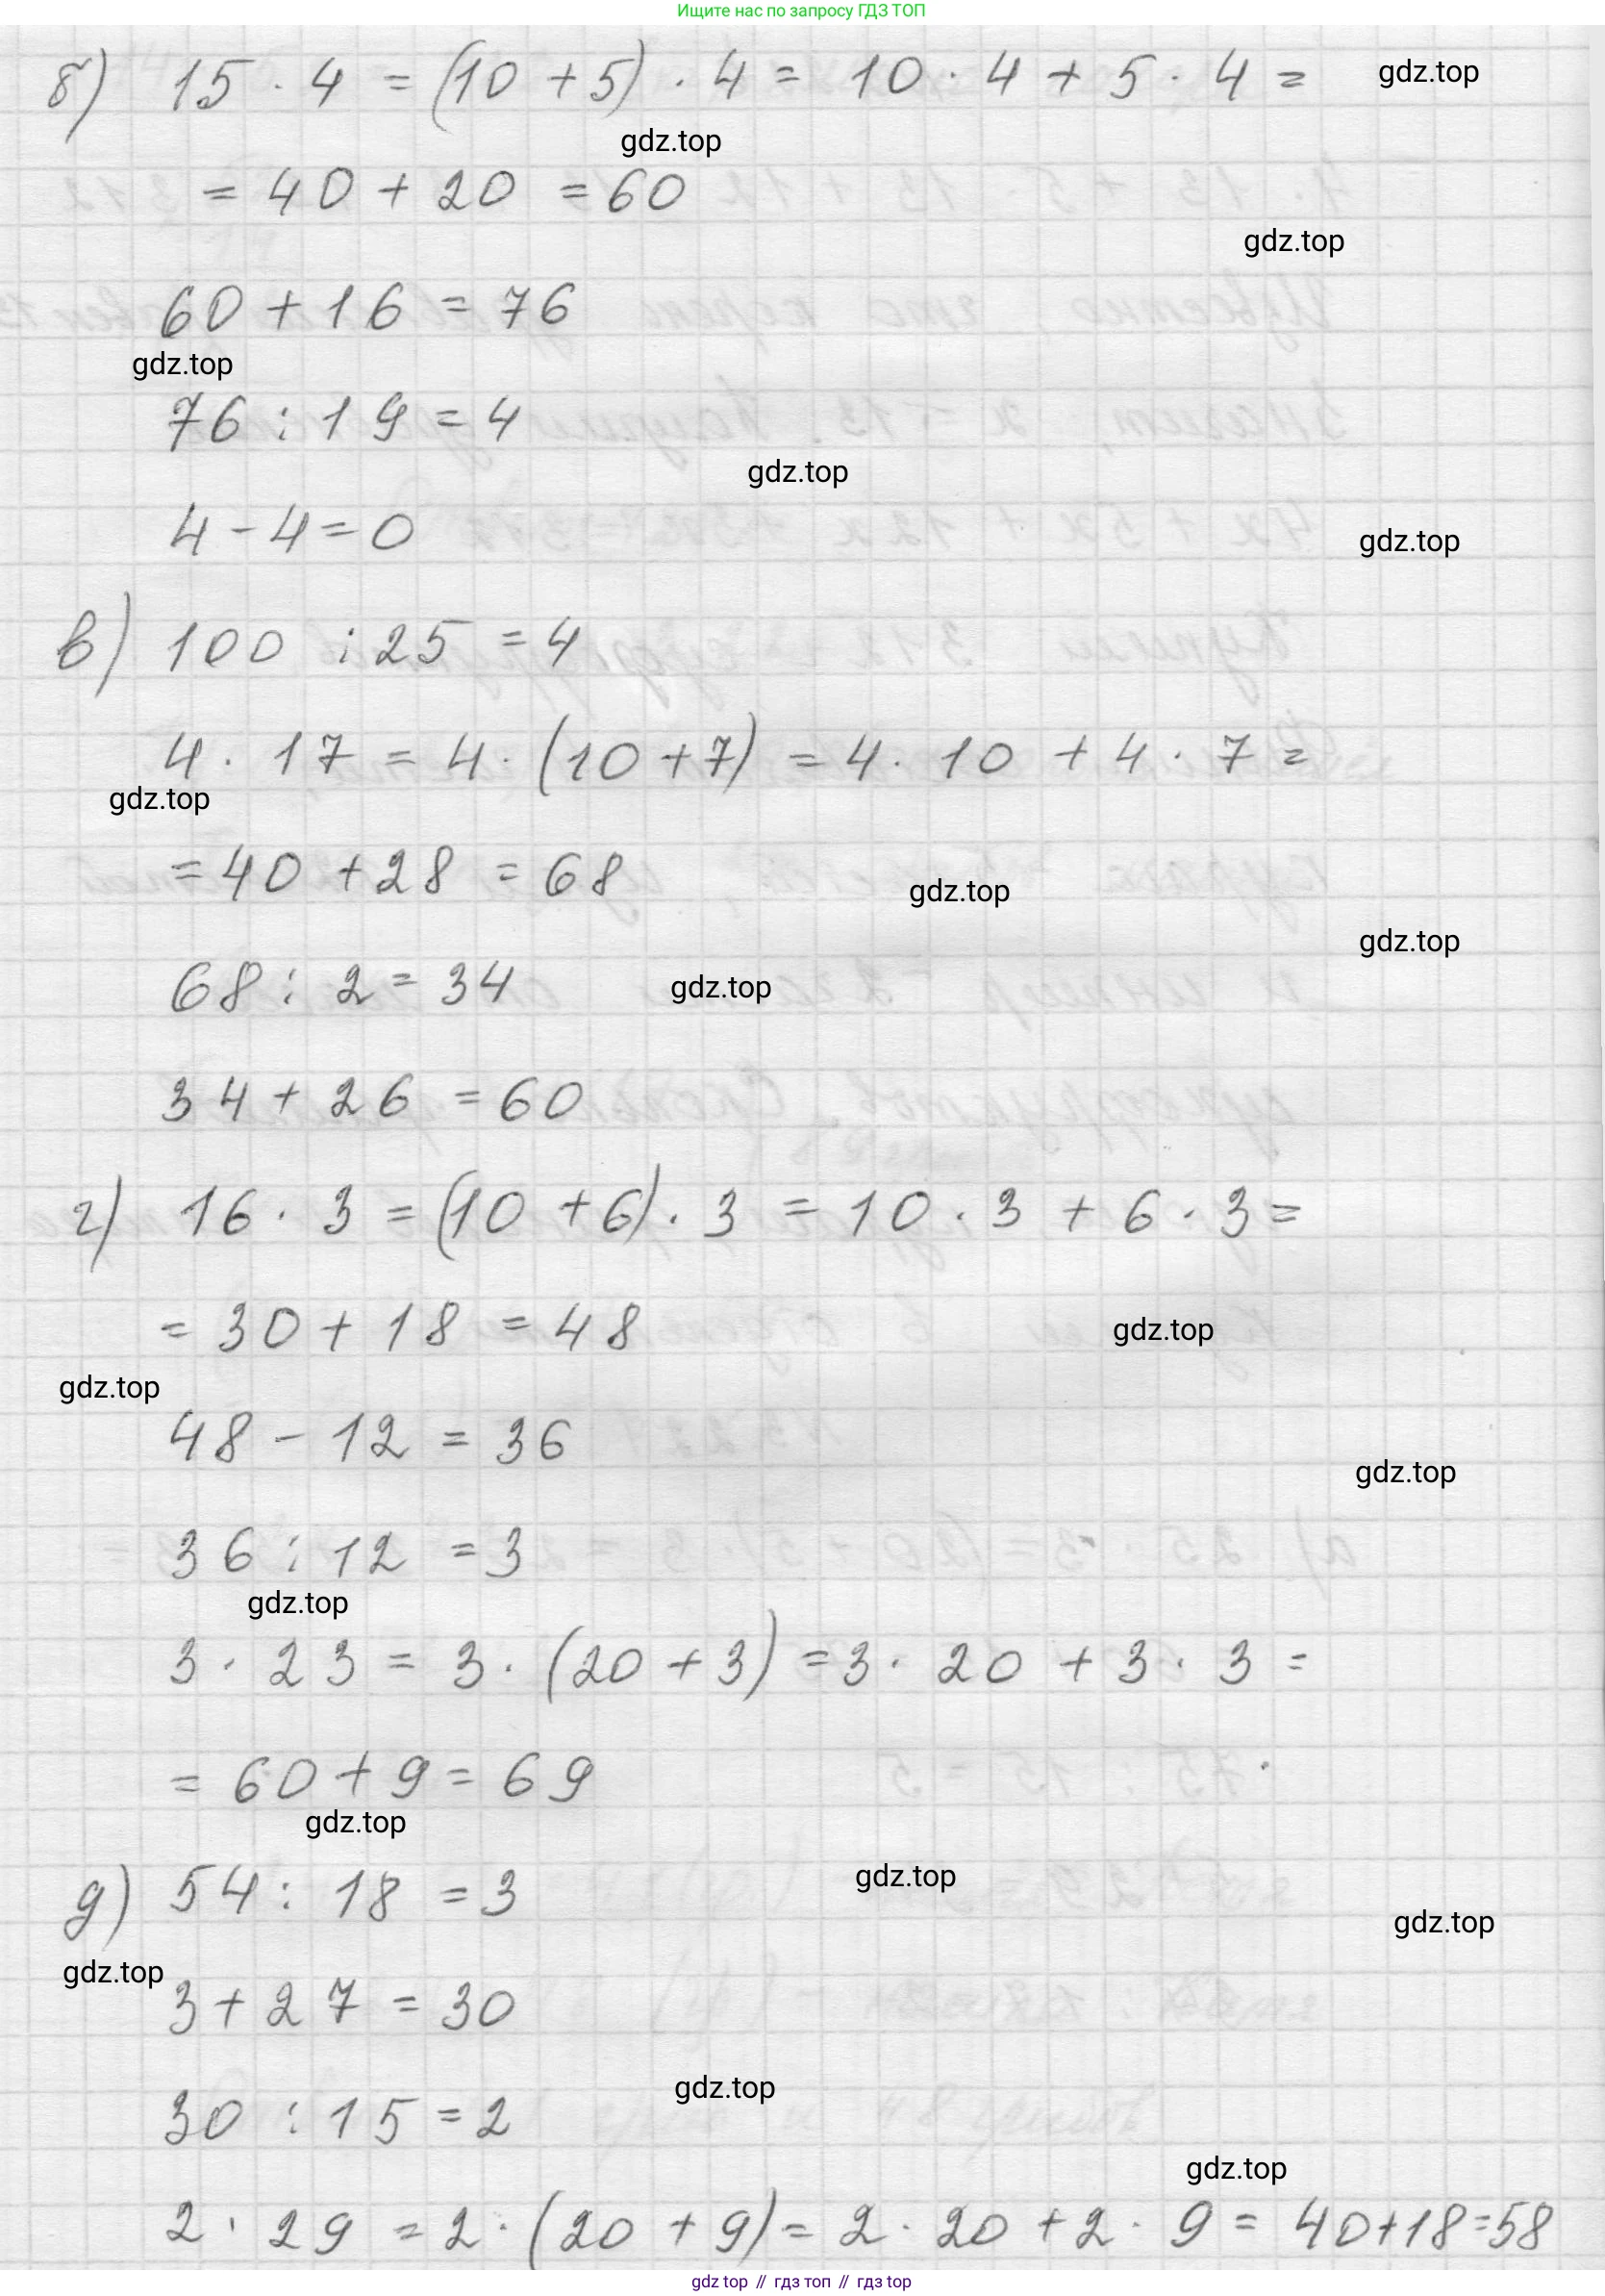 Ищите нас по запросу ГДЗ ТОП
б) 15 · 4 = (10 + 5) · 4 = 10 · 4 + 5 · 4 =
gdz.top
gdz.top
= 40 + 20 = 60
gdz.top
60 + 16 = 76
gdz.top
76 : 19 = 4
gdz.top
4 - 4 = 0
gdz.top
в) 100 : 25 = 4
4 · 17 = 4 · (10 + 7) = 4 · 10 + 4 · 7 =
gdz.top
= 40 + 28 = 68
gdz.top
gdz.top
68 : 2 = 34
gdz.top
34 + 26 = 60
г) 16 · 3 = (10 + 6) · 3 = 10 · 3 + 6 · 3 =
= 30 + 18 = 48
gdz.top
gdz.top
48 - 12 = 36
gdz.top
36 : 12 = 3
gdz.top
3 · 23 = 3 · (20 + 3) = 3 · 20 + 3 · 3 =
= 60 + 9 = 69
gdz.top
gdz.top
д) 54 : 18 = 3
gdz.top
gdz.top
3 + 27 = 30
gdz.top
30 : 15 = 2
gdz.top
2 · 29 = 2 · (20 + 9) = 2 · 20 + 2 · 9 = 40 + 18 = 58
gdz top // гдз топ // gdz top